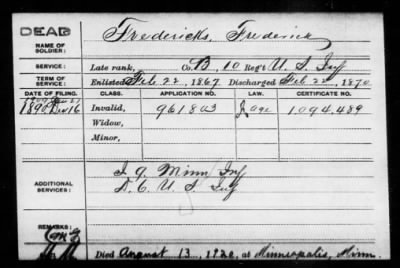 DEAD
NAME OF SOLDIER:
Fredericks, Frederick
SERVICE:
Late rank, Co. B, 10 Reg't U. S. Inf
TERM OF SERVICE:
Enlisted Feb. 22, 1867 Discharged Feb. 22, 1870
DATE OF FILING. CLASS. APPLICATION NO. LAW. CERTIFICATE NO.
1890 Dec 16 Invalid, 961803 Age 1.094.489
Widow,
Minor,
ADDITIONAL SERVICES:
I 9 Minn Inf
D. 6 U S Inf
REMARKS:
Died August 13, 1920, at Minneapolis, Minn.